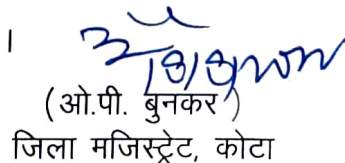 ।
(ओ.पी. बुनकर)
जिला मजिस्ट्रेट, कोटा